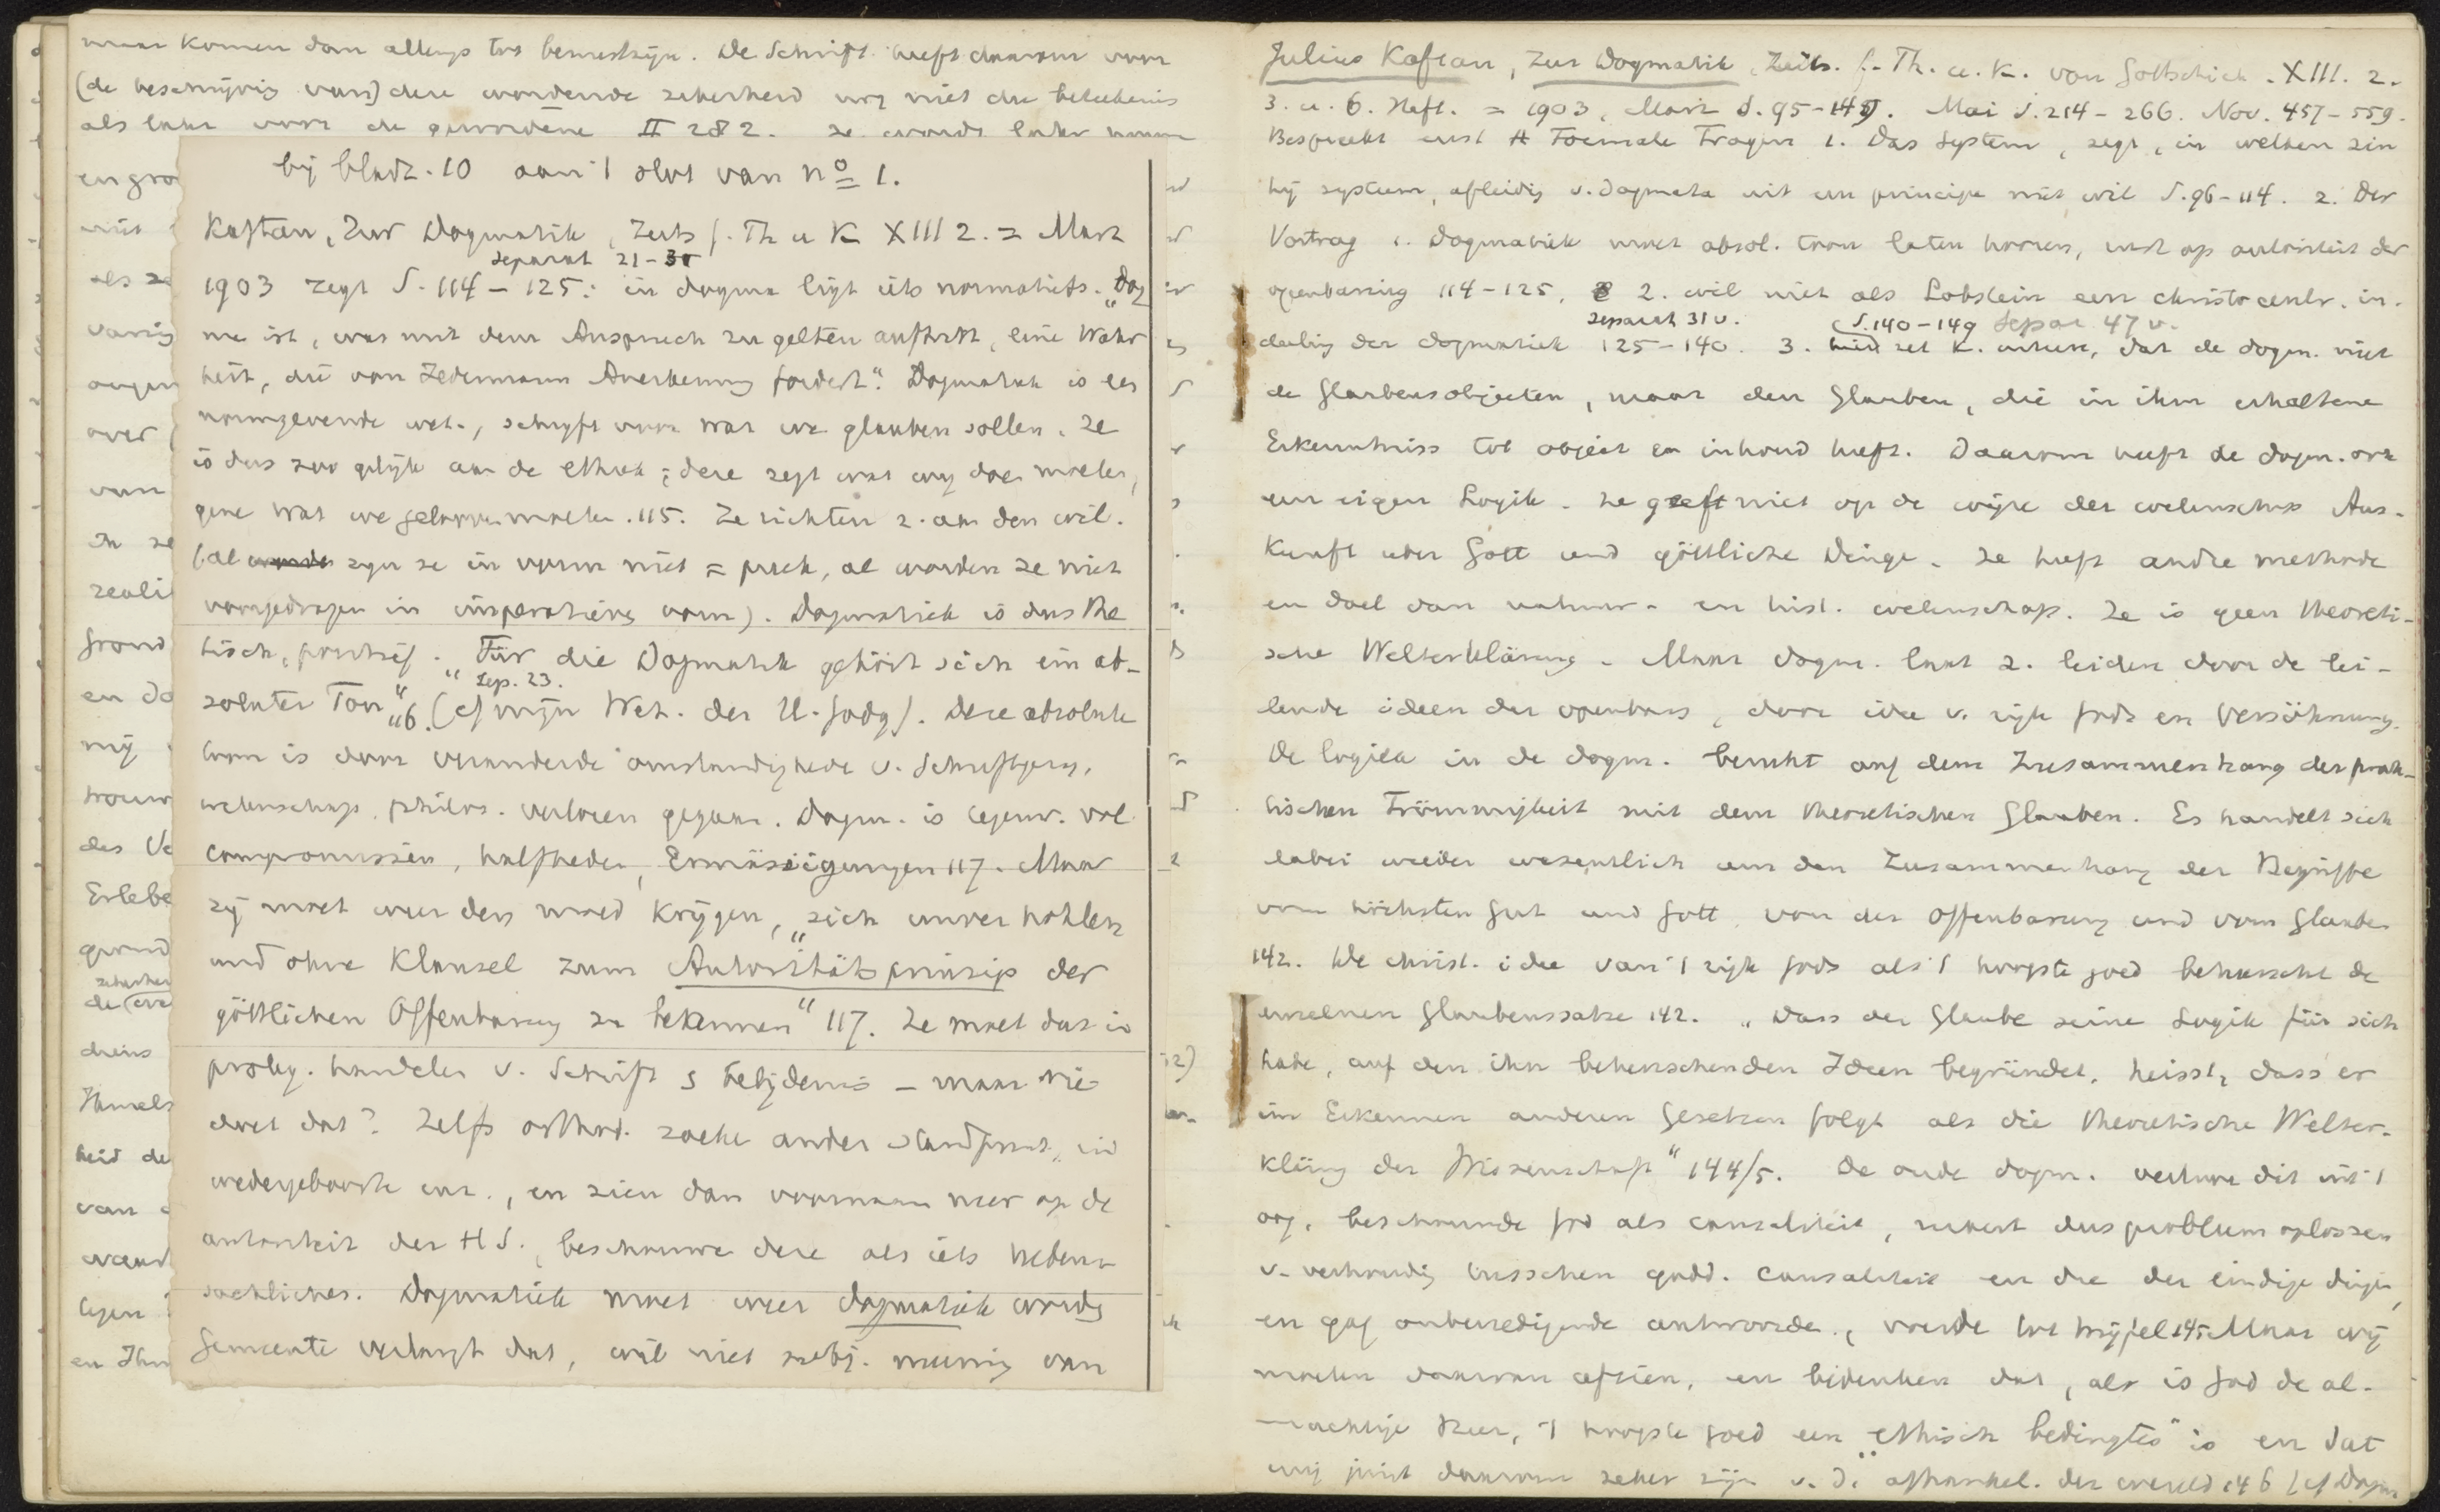 maar komen dan allengs tot bewustzijn. De Schrift heeft daarom voor
(de beschrijving van) deze wordende zekerheid nog niet die beteekenis
als later voor de gewordene II 282. ze wordt later
bij bladz. 10 aan 't slot van no 1.
Kaftan, Zur Dogmatik, Zeits f. Th u K XIII 2. = Marz
separat 21-31
1903 zegt S. 114-125: in dogma ligt iets normatiefs. "Dog
ma ist, was mit dem Anspruch zu gelten auftritt, eine Wahr
heit, die von Jedermann Anerkennung fordert". Dogmatiek is een
normgevende wet., schrijft voor was wir glauben sollen. Ze
is dus zoo gelijk aan de ethiek; deze zegt wat wij doen moeten,
gene wat we gelooven moeten. 115. Ze richten z. aan den wil.
(al zijn ze in vorm niet = preek, al worden ze niet
voorgedragen in imperatieven vorm). Dogmatiek is dus the
tisch, positief. "Für die Dogmatik gehört sich ein ab-
sep. 23.
soluter Ton" 116. (cf mijn Wet. der H. Godg). Deze absolute
toon is door veranderde omstandigheden v. Schriftgezag,
wetenschap, philos. verloren gegaan. Dogm. is tegenw. vol
compromissen, halfheden, Ermässigungen 117. Maar
zij moet weer den moed krijgen, "sich unverhohlen
und ohne Klausel zum Autoritätsprinzip der
göttlichen Offenbarung zu bekennen" 117. Ze moet dus in
proleg. handelen v. Schrift & belijdenis - maar wie
doet dat? Zelfs orthod. zoeken ander standpunt, in
wedergeboorte enz., en zien dan voornaam neer op de
autoriteit der H S., beschouwen deze als iets Neben-
sächliches. Dogmatiek moet weer dogmatiek worden
Gemeente verlangt dat, wil niet subj. meening van
Julius Kaftan, Zur Dogmatik, Zeits. f. Th. u. K. von Gottschick. XIII. 2.
3. u. 6. Heft. = 1903, Marz S. 95-149. Mai S. 214-266. Nov. 457-559.
Bespreekt eerst A Formale Fragen 1. Das System, zegt, in welken zin
hij systeem, afleiding v. dogmata uit een principe niet wil S. 96-114. 2. Der
Vortrag : Dogmatiek moet absol. toon laten hooren, rust op autoriteit der
openbaring 114-125, 2. wil niet als Lobstein een christocentr. in-
separat 31 v.
S. 140-149 separ 47 v.
deeling der dogmatiek 125-140. 3. zet K. uiteen, dat de dogm. niet
de Glaubensobjecten, maar den Glauben, die in ihm erhaltene
Erkenntniss tot object en inhoud heeft. Daarom heeft de dogm. ook
een eigen Logik. Ze geeft niet op de wijze der wetenschap Aus-
kunft über Gott und göttliche Dinge. Ze heeft andre methode
en doel dan natuur- en hist. wetenschap. Ze is geen theoreti-
sche Welterklärung. Maar dogm. laat z. leiden door de lei-
dende ideen der openbaring, door idee v. rijk Gods en Versöhnung.
De logica in de dogm. beruht auf dem Zusammenhang der prak-
tischen Frömmigkeit mit dem theoretischen Glauben. Es handelt sich
dabei wieder wesentlich um den Zusammenhang der Begriffe
vom höchsten Gut und Gott, von der Offenbarung und vom Glauben
142. De christ. idee van 't rijk Gods als 't hoogste goed beheerscht de
einzelnen Glaubenssätze 142. "Dass der Glaube seine Logik für sich
habe, auf den ihn beherrschenden Ideen begründet, heisst, dass er
im Erkennen anderen Gesetzen folgt als die theoretische Welter-
klärung der Wissenschaft" 144/5. De oude dogm. verloor dit uit 't
oog, beschouwde God als causaliteit, moest dus probleem oplossen
v. verhouding tusschen godd. causaliteit en die der eindige dingen,
en gaf onbevredigende antwoorden, voerde tot twijfel 145. Maar wij
moeten daarvan afzien, en bedenken dat, als is God de al-
machtige Heer, 't hoogste goed een "ethisch bedingtes" is en dat
wij juist daarom zeker zijn v. d. afhankel. der wereld 146 (cf Dogm.